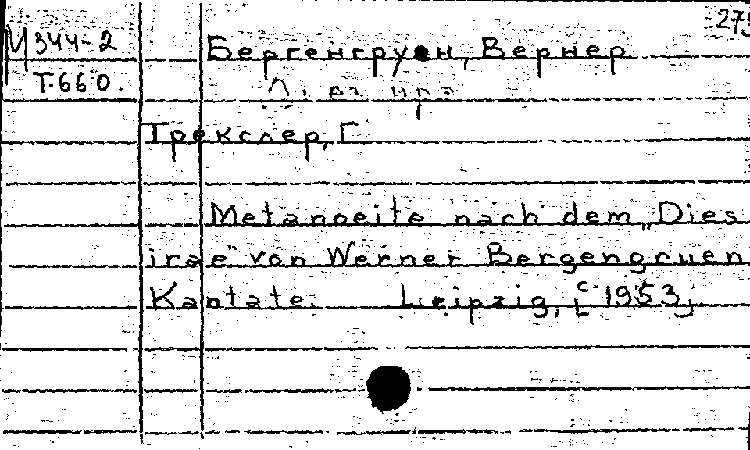 275
М 344-2
Т-660.
Бергенгруен, Вернер
Трекслер, Г.
Metanoeite nach dem „Dies
irae" von Werner Bergengruen
Kantate. Leipzig, [c 1953,